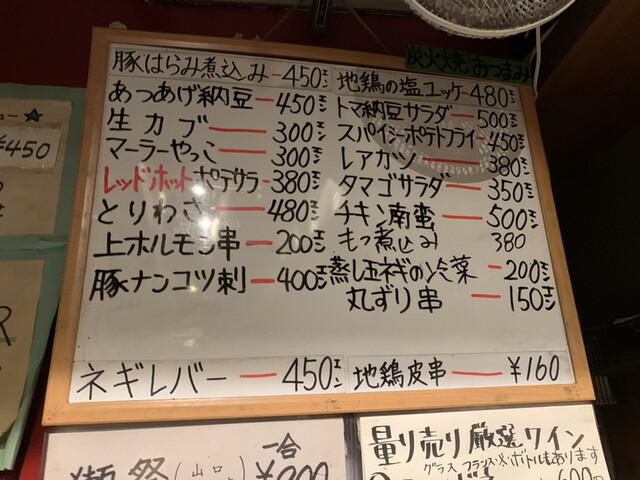 炭火焼おつまみ
豚はらみ煮込みー450エン
あつあげ納豆ー450エン
生カブー300エン
マーラーやっこー300エン
レッドホットポテサラー380エン
とりわさー480エン
上ホルモン串ー200エン
豚ナンコツ刺ー400エン
ネギレバーー450エン
地鶏の塩ユッケー480エン
トマ納豆サラダー500エン
スパイシーポテトフライー450エン
レアカツー380エン
タマゴサラダー350エン
チキン南蛮ー500エン
もつ煮込み 380
蒸し玉ネギの冷菜ー200エン
丸ずり串ー150エン
地鶏皮串ー¥160
¥450
獺祭(山口
一合
量り売り厳選ワイン
グラス フランス・火・ボトルもあります
600円